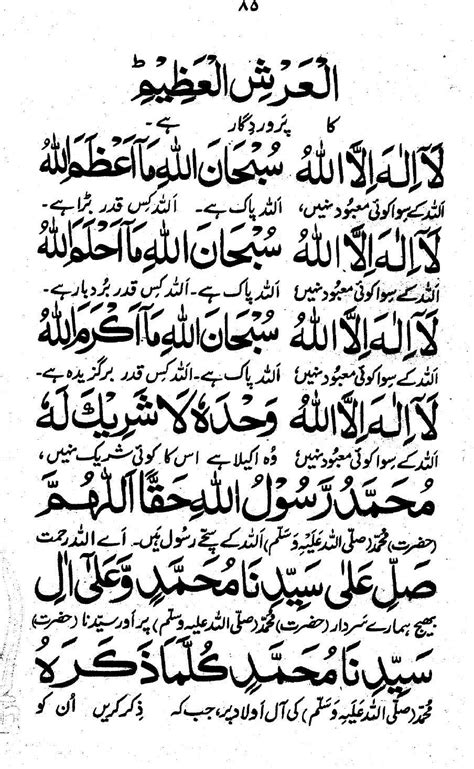 ٨٥
الْعَرْشِ الْعَظِيْمِؕ
کا پروردگار ہے۔
لَاۤ اِلٰهَ اِلَّا اللّٰهُ سُبْحَانَ اللّٰهِ مَاۤ اَعْظَمَ اللّٰهُ
اللہ کے سوا کوئی معبود نہیں، اللہ پاک ہے۔ اللہ کس قدر بڑا ہے۔
لَاۤ اِلٰهَ اِلَّا اللّٰهُ سُبْحَانَ اللّٰهِ مَاۤ اَحْلَمَ اللّٰهُ
اللہ کے سوا کوئی معبود نہیں، اللہ پاک ہے۔ اللہ کس قدر بُردبار ہے۔
لَاۤ اِلٰهَ اِلَّا اللّٰهُ سُبْحَانَ اللّٰهِ مَاۤ اَكْرَمَ اللّٰهُ
اللہ کے سوا کوئی معبود نہیں، اللہ پاک ہے۔ اللہ کس قدر برگزیدہ ہے۔
لَاۤ اِلٰهَ اِلَّا اللّٰهُ وَحْدَهٗ لَا شَرِيْكَ لَهٗ
اللہ کے سوا کوئی معبود نہیں، وُہ اکیلا ہے اس کا کوئی شریک نہیں،
مُحَمَّدٌ رَّسُوْلُ اللّٰهِ حَقًّا اَللّٰهُمَّ
(حضرت) محمّد (صلّی اللہ علَیہِ وَسَلّم) اللہ کے سچّے رسول ہیں۔ اَے اللہ رحمت
صَلِّ عَلٰى سَيِّدِنَا مُحَمَّدٍ وَّعَلٰۤى اٰلِ
بھیج ہمارے سردار (حضرت) محمّد (صلّی اللہ علیہ وسلّم) پر اور سیّدنا (حضرت)
سَيِّدِنَا مُحَمَّدٍ كُلَّمَا ذَكَرَهُ
محمّد (صلّی اللہ علَیہِ وَسَلّم) کی آل اولاد پر، جب کہ ذِکر کریں اُن کو